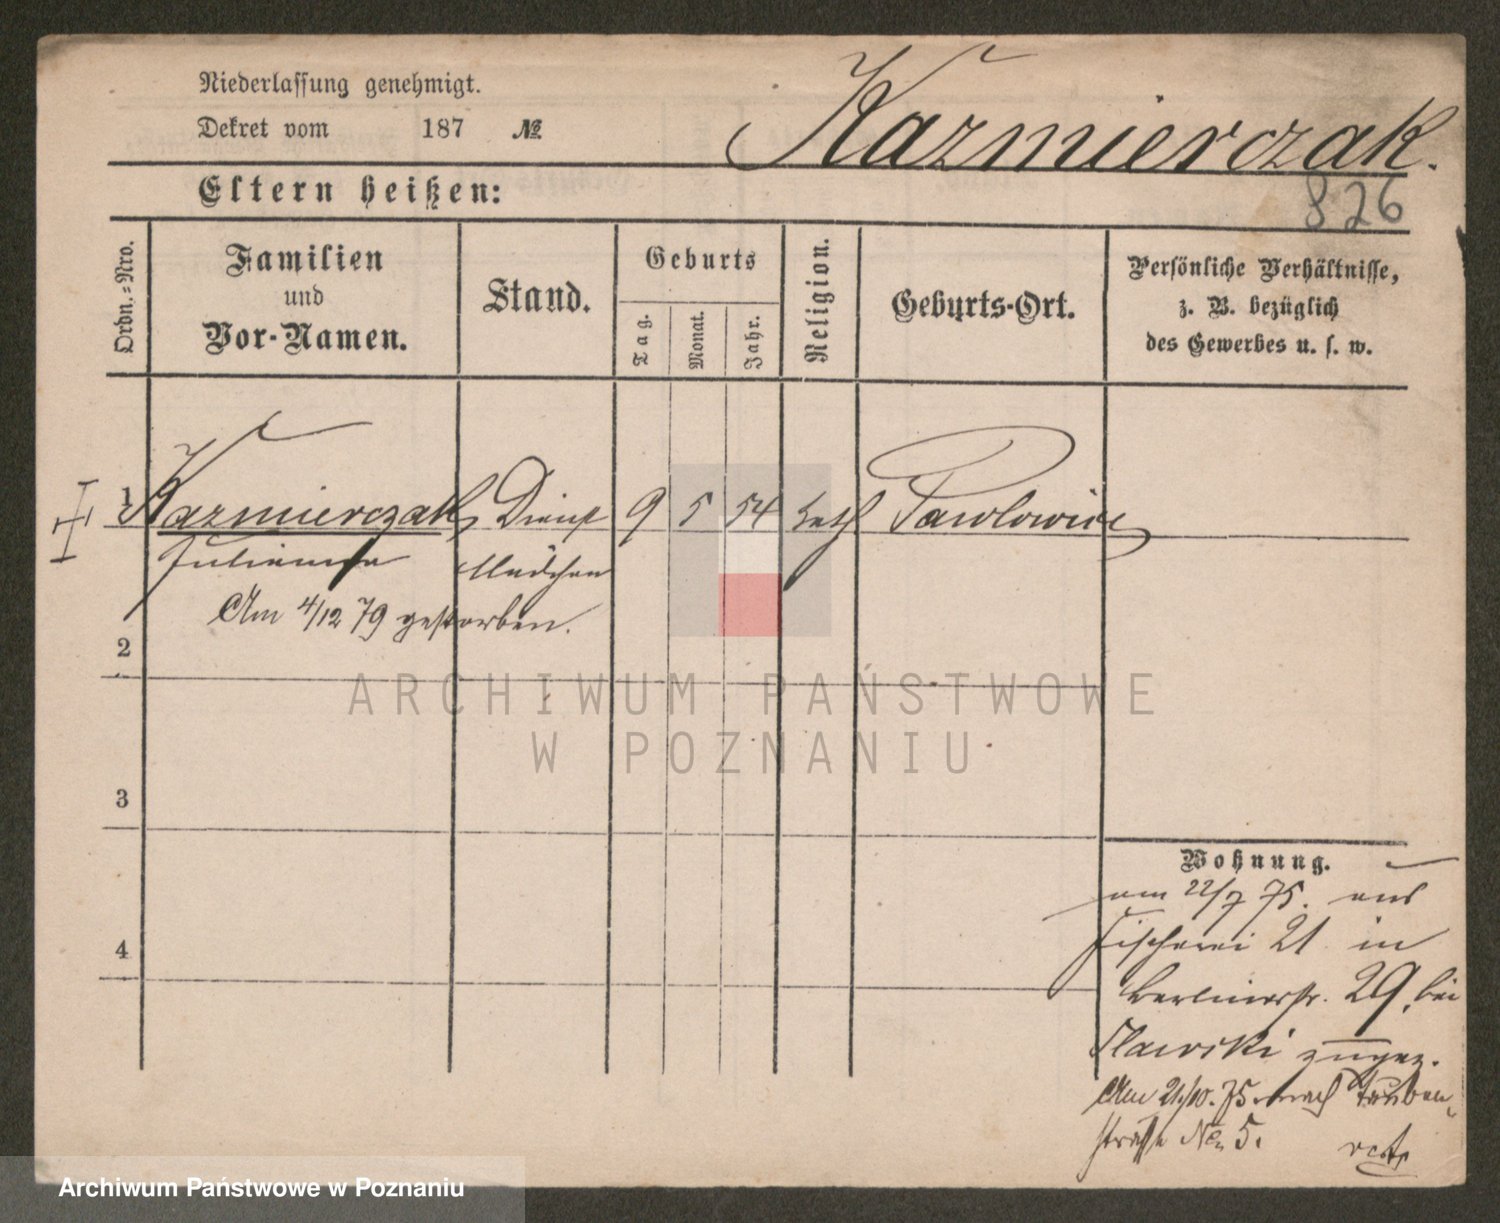 Niederlassung genehmigt.
Dekret vom 187 №
Kazmierczak.
826
Eltern heißen:
Ordn.-Nro.
Familien
und
Vor-Namen.
Stand.
Geburts
Tag.
Monat.
Jahr.
Religion.
Geburts-Ort.
Persönliche Verhältnisse,
z. B. bezüglich
des Gewerbes u. s. w.
1 Kazmierczak, Dienst 9 5 54 kath Pawlowice
Julianna Mädchen
Am 4/12 79 gestorben.
2
3
4
Wohnung.
am 22/7 75. aus
Fischerei 21 in
Berlinerstr. 29, bei
Slawski zugez.
Am 21/10. 75. nach Tauben-
straße No 5.
ARCHIWUM PAŃSTWOWE
W POZNANIU
Archiwum Państwowe w Poznaniu